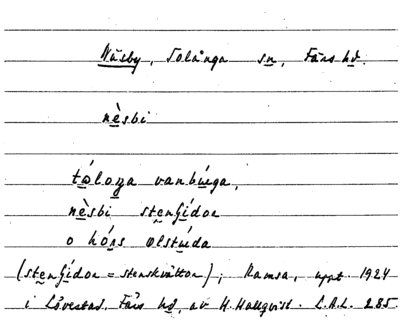 Näsby, Tolånga sn, Färs hd.
nèsbi
tálога vanbúega,
nèsbi stenʃídor
o hórs ølstúida
(stenʃídor = stenskvättor); Ramsa, uppt. 1924
i Lövestad, Färs hd, av H. Hallqvist. L.A.L. 285.